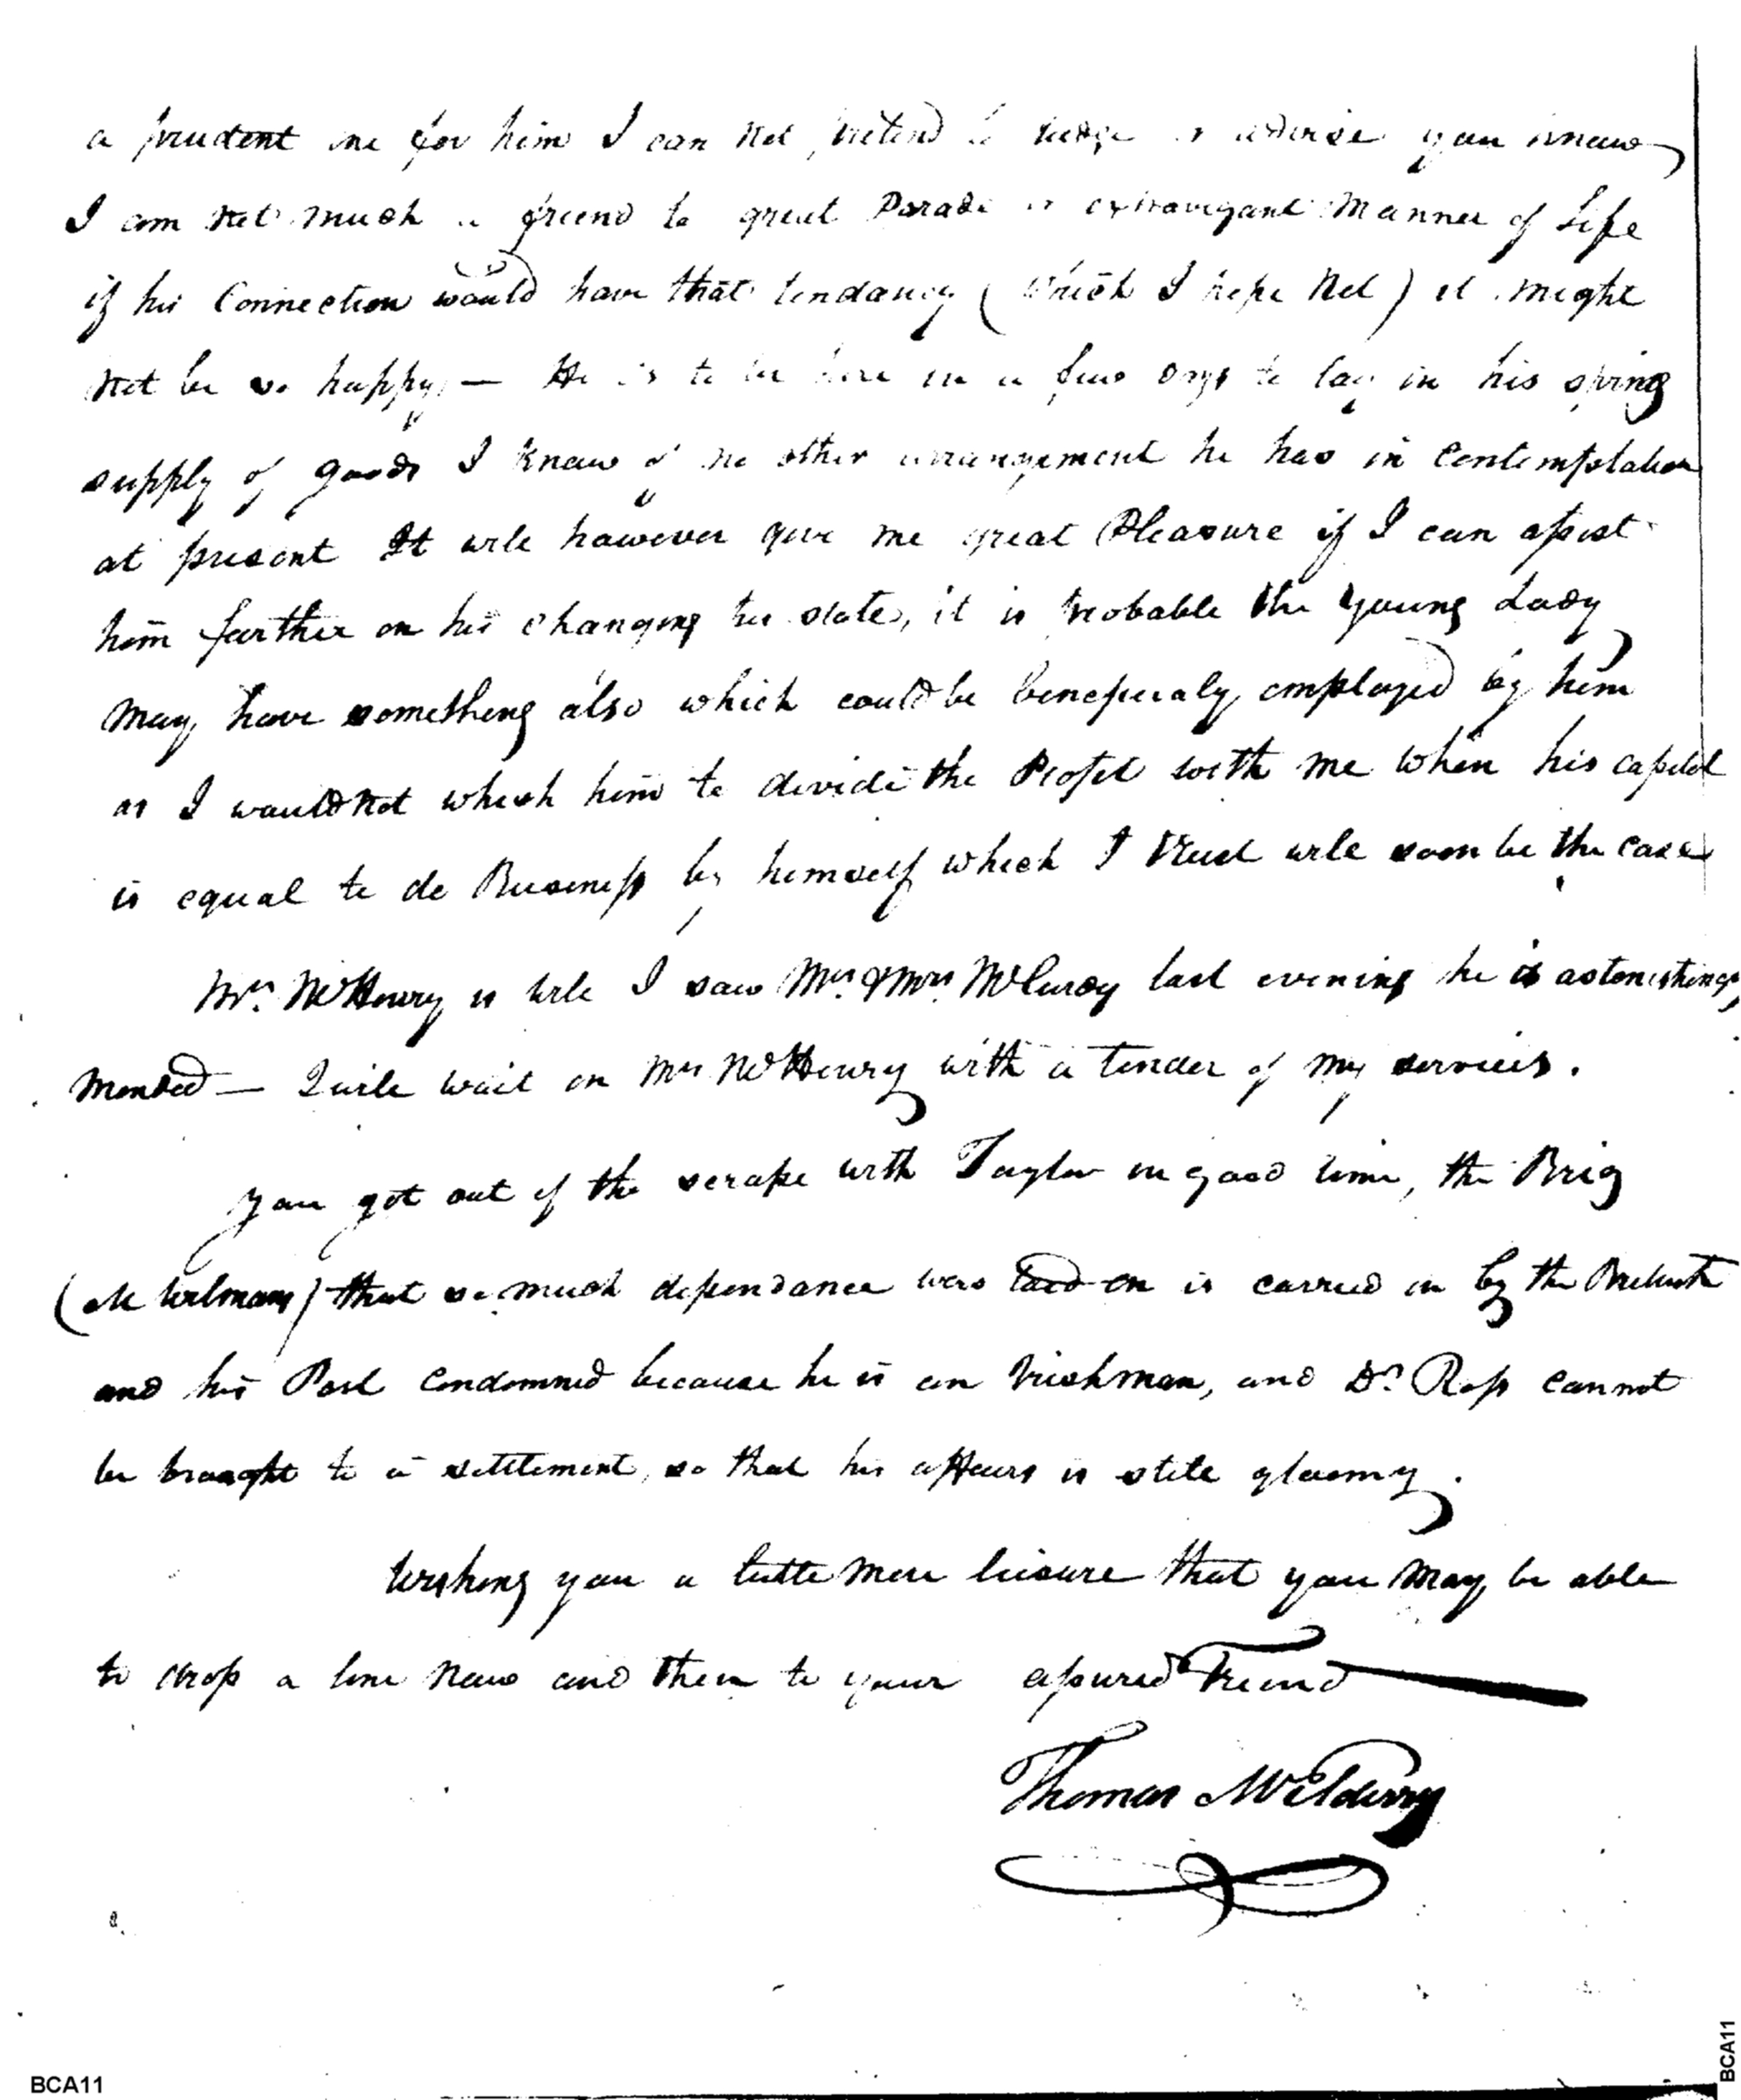 a prudent one for him I can not pretend to judge or advise you know
I am not much a friend to great Parade or extravigant manner of Life
if his Connection would have that tendancy (which I hope not) it might
not be so happy — He is to be here in a few days to lay in his spring
supply of goods I know of no other arrangement he has in contemplation
at present It wile however give me great Pleasure if I can assist
him farther on his changing his state, it is probable the young Lady
may have something also which could be beneficialy employed by him
as I would not whish him to divide the Profit with me when his capital
is equal to do Business by himself which I trust wile soon be the case
Mrs. McHenry is wile I saw Mr. & Mrs. McCurdy last evening he is astonishingy
mended — I wile wait on Mrs McHenry with a tender of my services.
you got out of the scrape with Taylor in good time, the Brig
that so much dependance was laid on is carried in by the
and his Part condemned because he is an Irishman, and Dr. Ross cannot
be brought to a settlement, so that his affairs is stile gloomy.
Wishing you a little more leisure that you may be able
to drop a line now and then to your assured Friend
Thomas McElderry
BCA11
BCA11